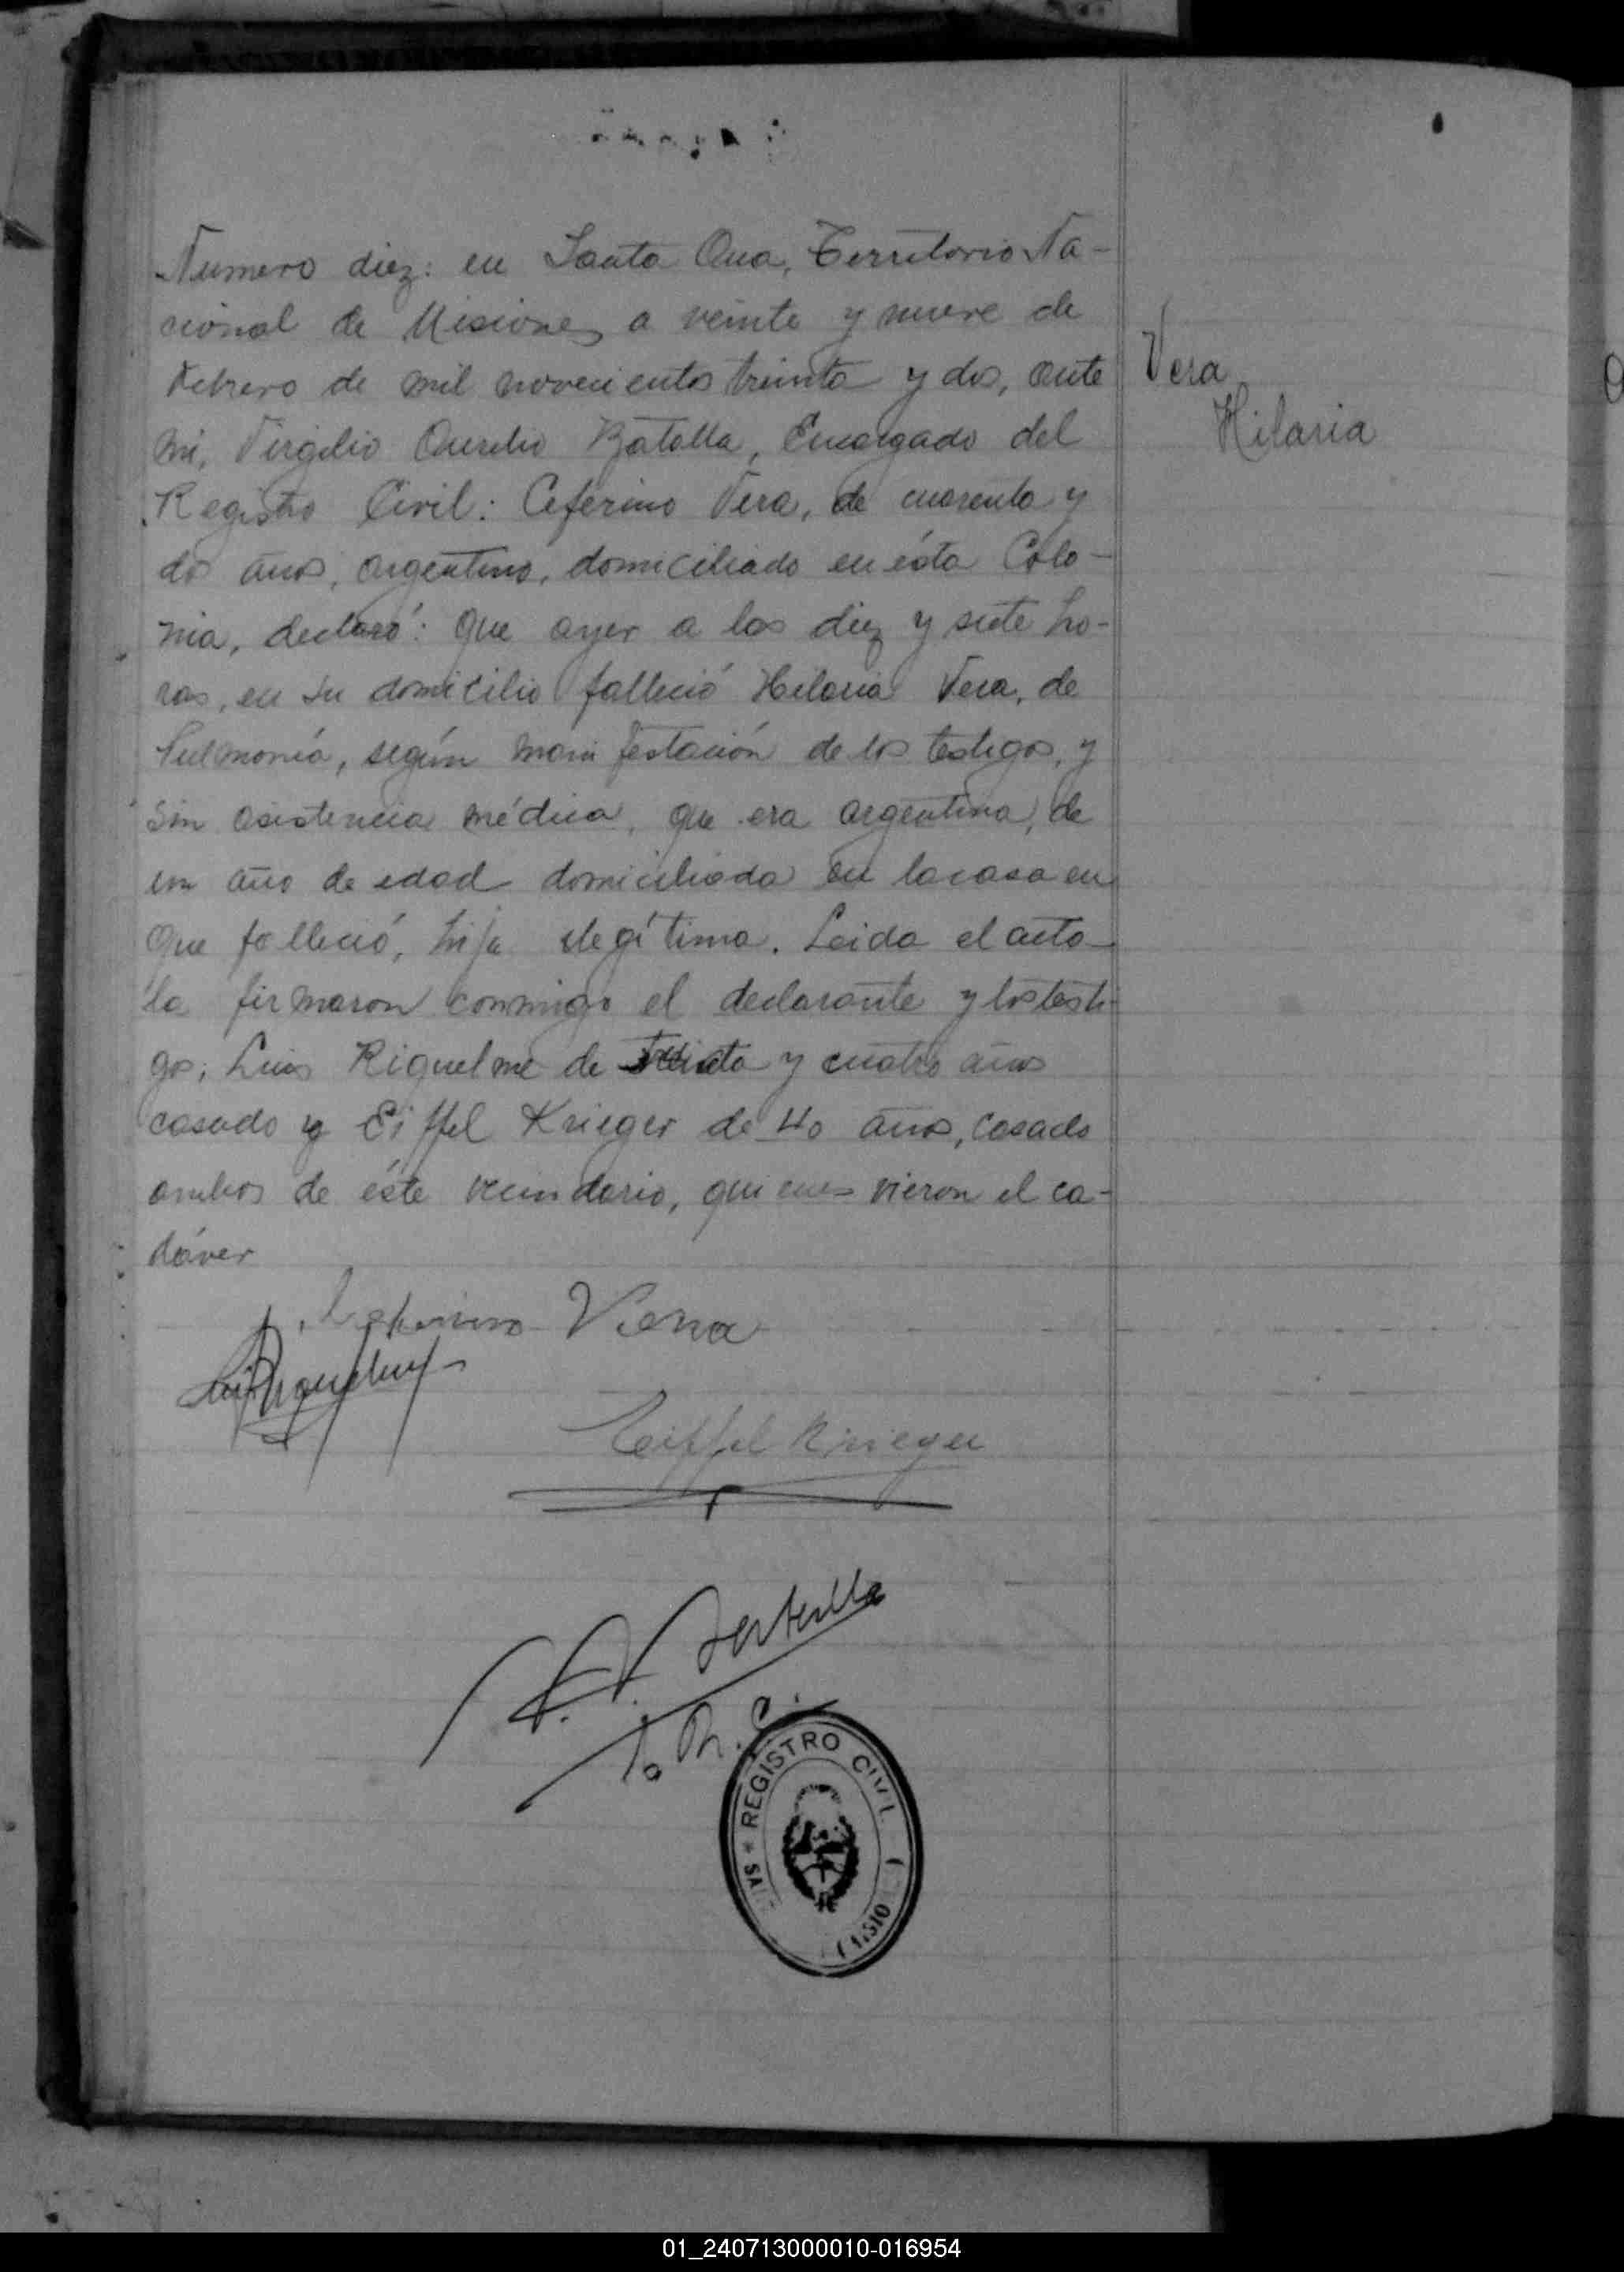 Numero diez: en Santa Ana, Territorio Na-
cional de Misiones a veinte y nueve de
Febrero de mil novecientos treinta y dos, ante
mi, Virgilio Aurelio Batalla, Encargado del
Registro Civil: Ceferino Vera, de cuarenta y
dos años, argentino, domiciliado en ésta Colo-
nia, declaró: Que ayer a las diez y siete ho-
ras, en su domicilio falleció Hilaria Vera, de
Pulmonía, según manifestación de los testigos, y
sin asistencia médica, que era argentina, de
un año de edad domiciliada en la casa en
que falleció, hija ilegítima. Leida el acta
la firmaron conmigo el declarante y los testi-
gos; Luis Riquelme de treinta y cuatro años
casado y Eiffel Krieger de 40 años, casado
ambos de éste vecindario, quienes vieron el ca-
dáver
Vera
Hilaria
Ceferino Vera
Luis Riquelme
Eiffel Krieger
REGISTRO CIVIL
01_240713000010-016954